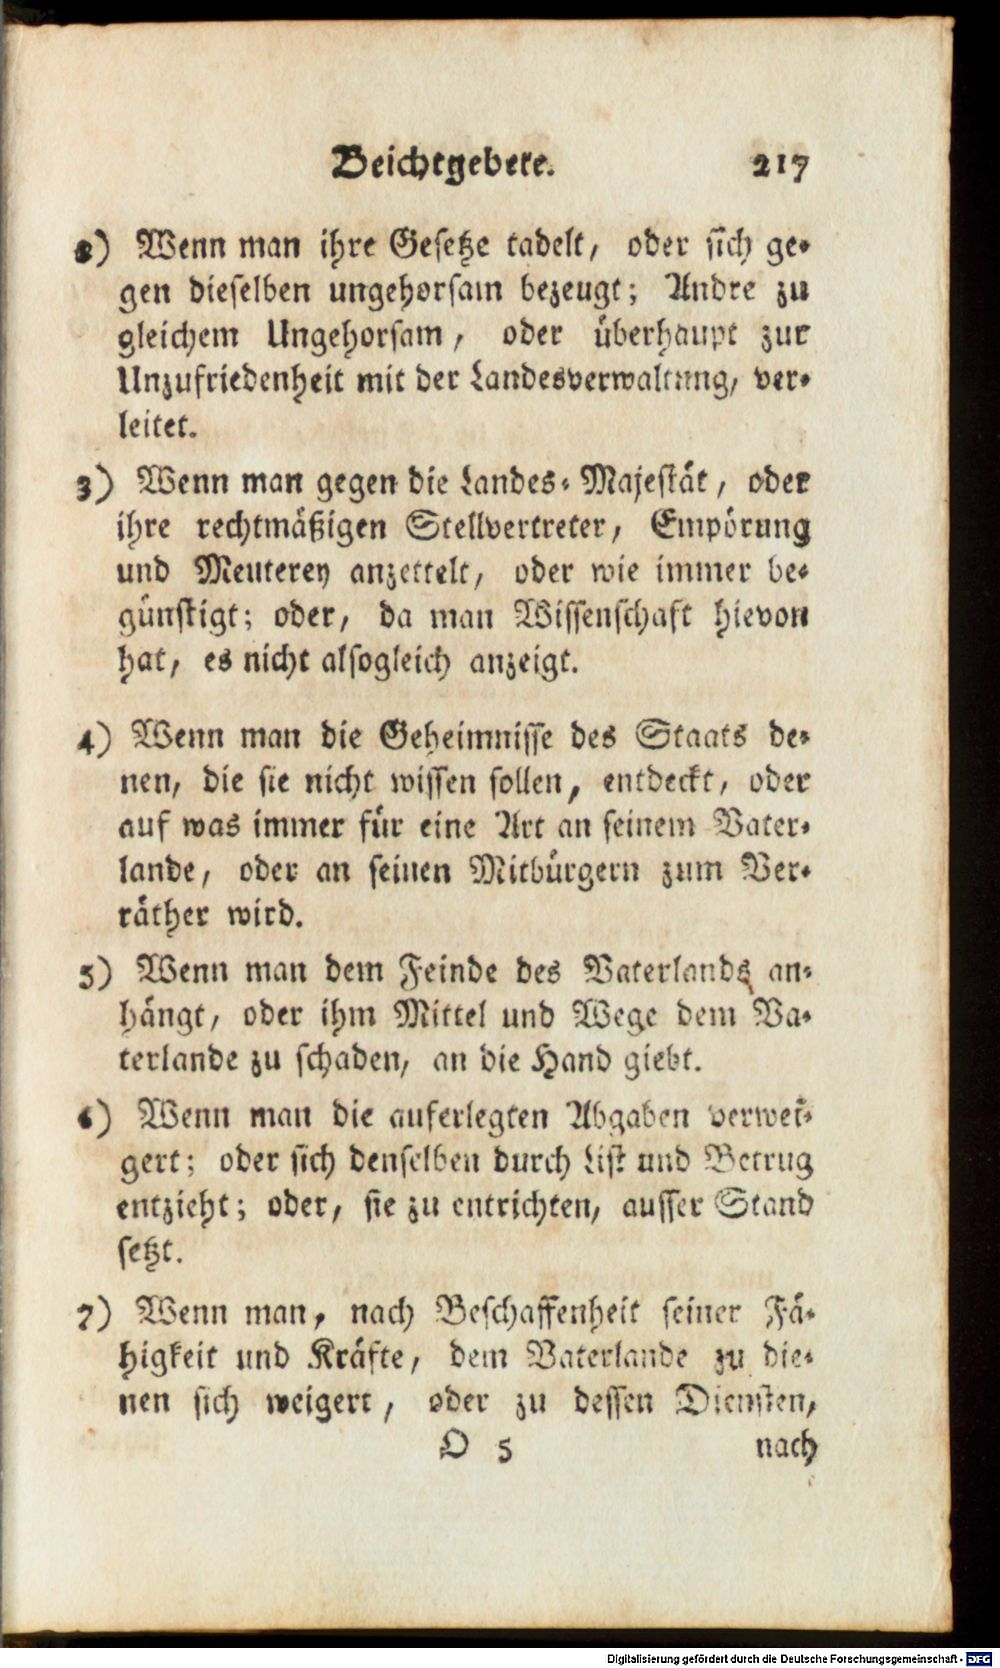 Beichtgebete. 217
2) Wenn man ihre Gesetze tadelt, oder sich ge-
gen dieselben ungehorsam bezeugt; Andre zu
gleichem Ungehorsam, oder überhaupt zur
Unzufriedenheit mit der Landesverwaltung, ver-
leitet.
3) Wenn man gegen die Landes-Majestät, oder
ihre rechtmäßigen Stellvertreter, Empörung
und Meuterey anzettelt, oder wie immer be-
günstigt; oder, da man Wissenschaft hievon
hat, es nicht alsogleich anzeigt.
4) Wenn man die Geheimnisse des Staats de-
nen, die sie nicht wissen sollen, entdeckt, oder
auf was immer für eine Art an seinem Vater-
lande, oder an seinen Mitbürgern zum Ver-
räther wird.
5) Wenn man dem Feinde des Vaterlands an-
hängt, oder ihm Mittel und Wege dem Va-
terlande zu schaden, an die Hand giebt.
6) Wenn man die auferlegten Abgaben verwei-
gert; oder sich denselben durch List und Betrug
entzieht; oder, sie zu entrichten, ausser Stand
setzt.
7) Wenn man, nach Beschaffenheit seiner Fä-
higkeit und Kräfte, dem Vaterlande zu die-
nen sich weigert, oder zu dessen Diensten,
O 5 nach
Digitalisierung gefördert durch die Deutsche Forschungsgemeinschaft - DFG